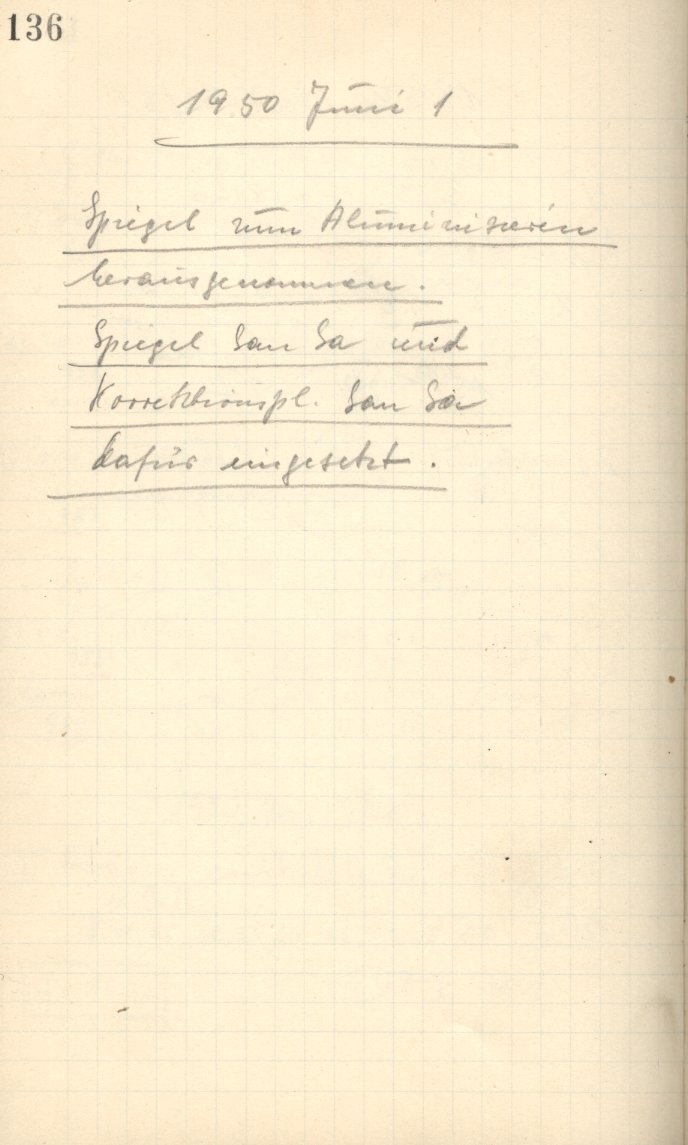 136
1950 Juni 1
Spiegel zum Aluminisieren
herausgenommen.
Spiegel San Sa und
Korrektionspl. San Sa
dafür eingesetzt.